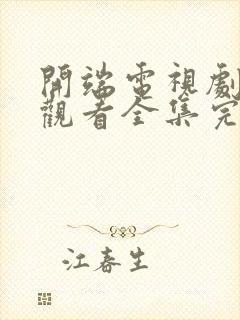 開端電視劇
觀看全集完
江春生